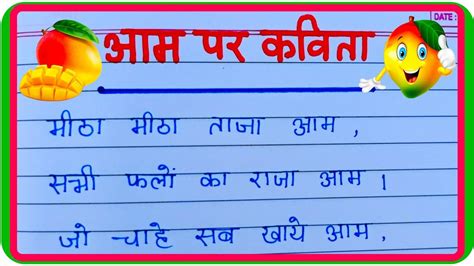 DATE:
आम पर कविता
मीठा मीठा ताजा आम,
सभी फलों का राजा आम।
जो चाहे सब खाये आम,